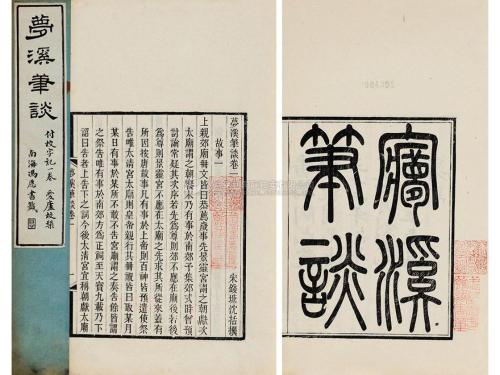 夢溪筆談
付校字記一卷 愛廬校槧
南海馮愿書籤
夢溪筆談卷一
宋錢塘沈括撰
故事一
上親郊廟冊文皆曰恭薦歲事先景靈宮謂之朝獻次
太廟謂之朝饗末乃有事於南郊予集郊式時曾預
討論常疑其次序若先爲尊則郊不應在廟後若後
爲尊則景靈宮不應在太廟之先求其所從來蓋有
所因按唐故事凡有事於上帝則百神皆預遣使祭
告唯太清宮太廟則皇帝親行其冊祝皆曰取某月
某日有事於某所不敢不告宮廟謂之奏告餘皆謂
之祭告唯有事於南郊方爲正祠至天寶九載乃下
詔曰告者上告下之詞今後太清宮宜稱朝獻太廟
夢溪筆談卷一
㝱溪
筆談